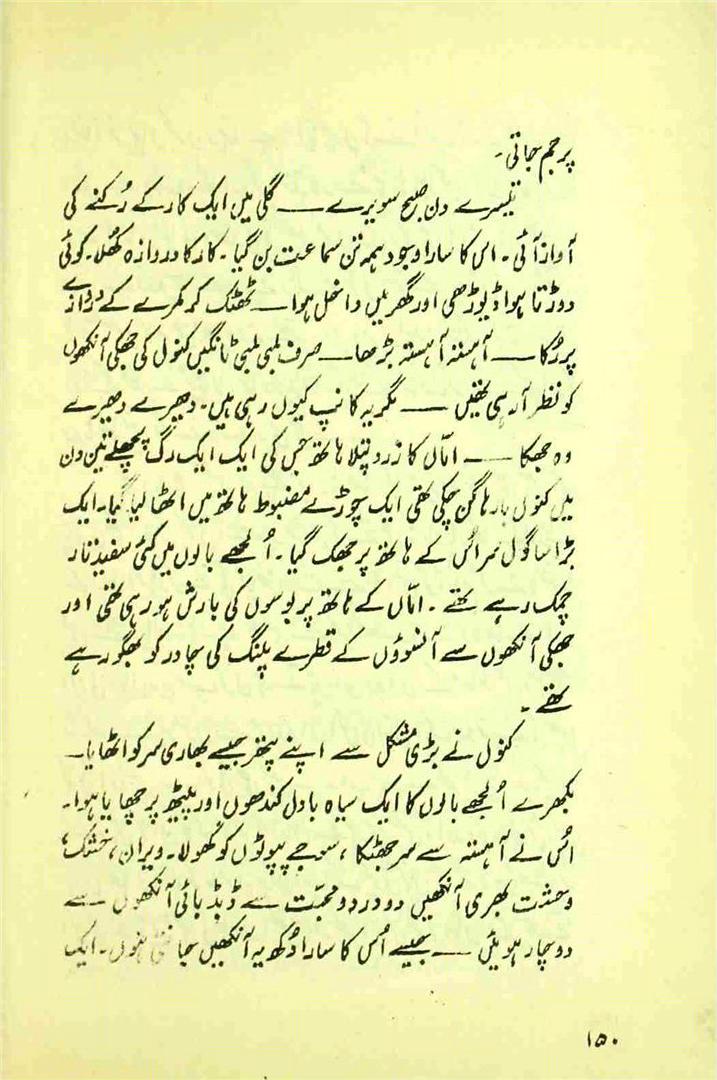 پر جم جاتی۔
تیسرے دن صبح سویرے — گلی میں ایک کار کے رُکنے کی
آواز آئی۔ اس کا سارا وجود ہمہ تن سماعت بن گیا۔ کار کا دروازہ کھُلا۔ کوئی
دوڑتا ہوا ڈیوڑھی اور گھر میں داخل ہوا — ٹھٹک کر کمرے کے دروازے
پر رُکا — آہستہ آہستہ بڑھا — صرف لمبی لمبی ٹانگیں کنول کی جھکی آنکھوں
کو نظر آ رہی تھیں — مگر یہ کانپ کیوں رہی ہیں۔ دھیرے دھیرے
وہ جھکا — امّاں کا زرد پتلا ہاتھ جس کی ایک ایک رگ پچھلے تین دن
میں کنول بارہا گن چکی تھی ایک چوڑے مضبوط ہاتھ میں اٹھا لیا گیا۔ ایک
بڑا سا گول سر اُس کے ہاتھ پر جھک گیا۔ اُلجھے بالوں میں کئی سفید تار
چمک رہے تھے۔ امّاں کے ہاتھ پر بوسوں کی بارش ہو رہی تھی اور
جھکی آنکھوں سے آنسوؤں کے قطرے پلنگ کی چادر کو بھگو رہے
تھے۔
کنول نے بڑی مشکل سے اپنے پتھر جیسے بھاری سر کو اٹھایا۔
بکھرے اُلجھے بالوں کا ایک سیاہ بادل کندھوں اور پیٹھ پر چھایا ہوا۔
اُس نے آہستہ سے سر جھٹکا، سوجے پپوٹوں کو کھولا۔ ویران، خشک،
وحشت بھری آنکھیں دو درد و محبّت سے ڈبڈبائی آنکھوں سے
دوچار ہوئیں — جیسے اُس کا سارا دُکھ یہ آنکھیں جانتی ہوں۔ ایک
۱۵۰